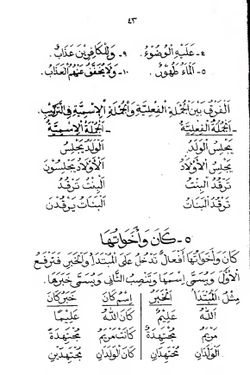 ٤٣
٤- عَلَيْهِ الْوُضُوْءُ. ٩- وَلِلْكَافِرِيْنَ عَذَابٌ.
٥- اَلْمَاءُ طَهُوْرٌ. ١٠- وَلَا يُخَفَّفُ عَنْهُمُ الْعَذَابُ.
اَلْفَرْقُ بَيْنَ الْجُمْلَةِ الْفِعْلِيَّةِ وَالْجُمْلَةِ الْاِسْمِيَّةِ فِى التَّرْكِيْبِ.
اَلْجُمْلَةُ الْفِعْلِيَّةُ اَلْجُمْلَةُ الْاِسْمِيَّةُ
يَجْلِسُ الْوَلَدُ اَلْوَلَدُ يَجْلِسُ
يَجْلِسُ الْاَوْلَادُ اَلْاَوْلَادُ يَجْلِسُوْنَ
تَرْقُدُ الْبِنْتُ اَلْبِنْتُ تَرْقُدُ
تَرْقُدُ الْبَنَاتُ اَلْبَنَاتُ يَرْقُدْنَ
٥- كَانَ وَأَخَوَاتُهَا
كَانَ وَأَخَوَاتُهَا أَفْعَالٌ تَدْخُلُ عَلَى الْمُبْتَدَأِ وَالْخَبَرِ فَتَرْفَعُ
الْأَوَّلَ وَيُسَمَّى اِسْمَهَا وَتَنْصِبُ الثَّانِى وَيُسَمَّى خَبَرَهَا.
مِثْلُ: اَلْمُبْتَدَأُ اَلْخَبَرُ اِسْمُ كَانَ خَبَرُ كَانَ
اَللّٰهُ عَلِيْمٌ كَانَ اللّٰهُ عَلِيْمًا
مَرْيَمُ مُجْتَهِدَةٌ كَانَتْ مَرْيَمُ مُجْتَهِدَةً
اَلْوَلَدَانِ مُجْتَهِدَانِ كَانَ الْوَلَدَانِ مُجْتَهِدَيْنِ